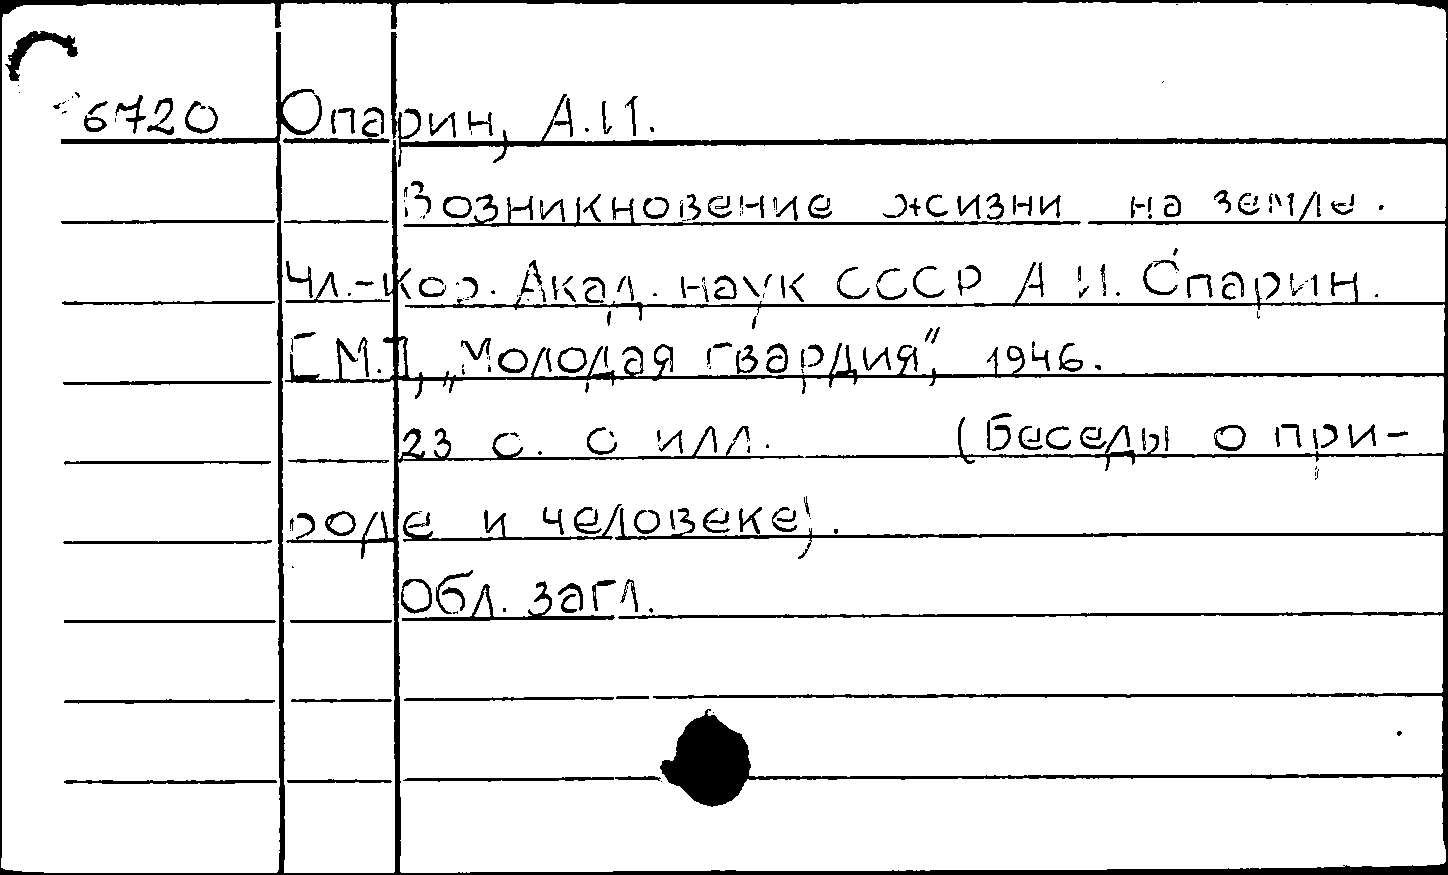 6720 Опарин, А.И.
Возникновение жизни на земле.
Чл.-кор. Акад. наук СССР А.И. Опарин.
[М.], „Молодая гвардия", 1946.
23 с. с илл. (Беседы о при-
роде и человеке).
Обл. загл.